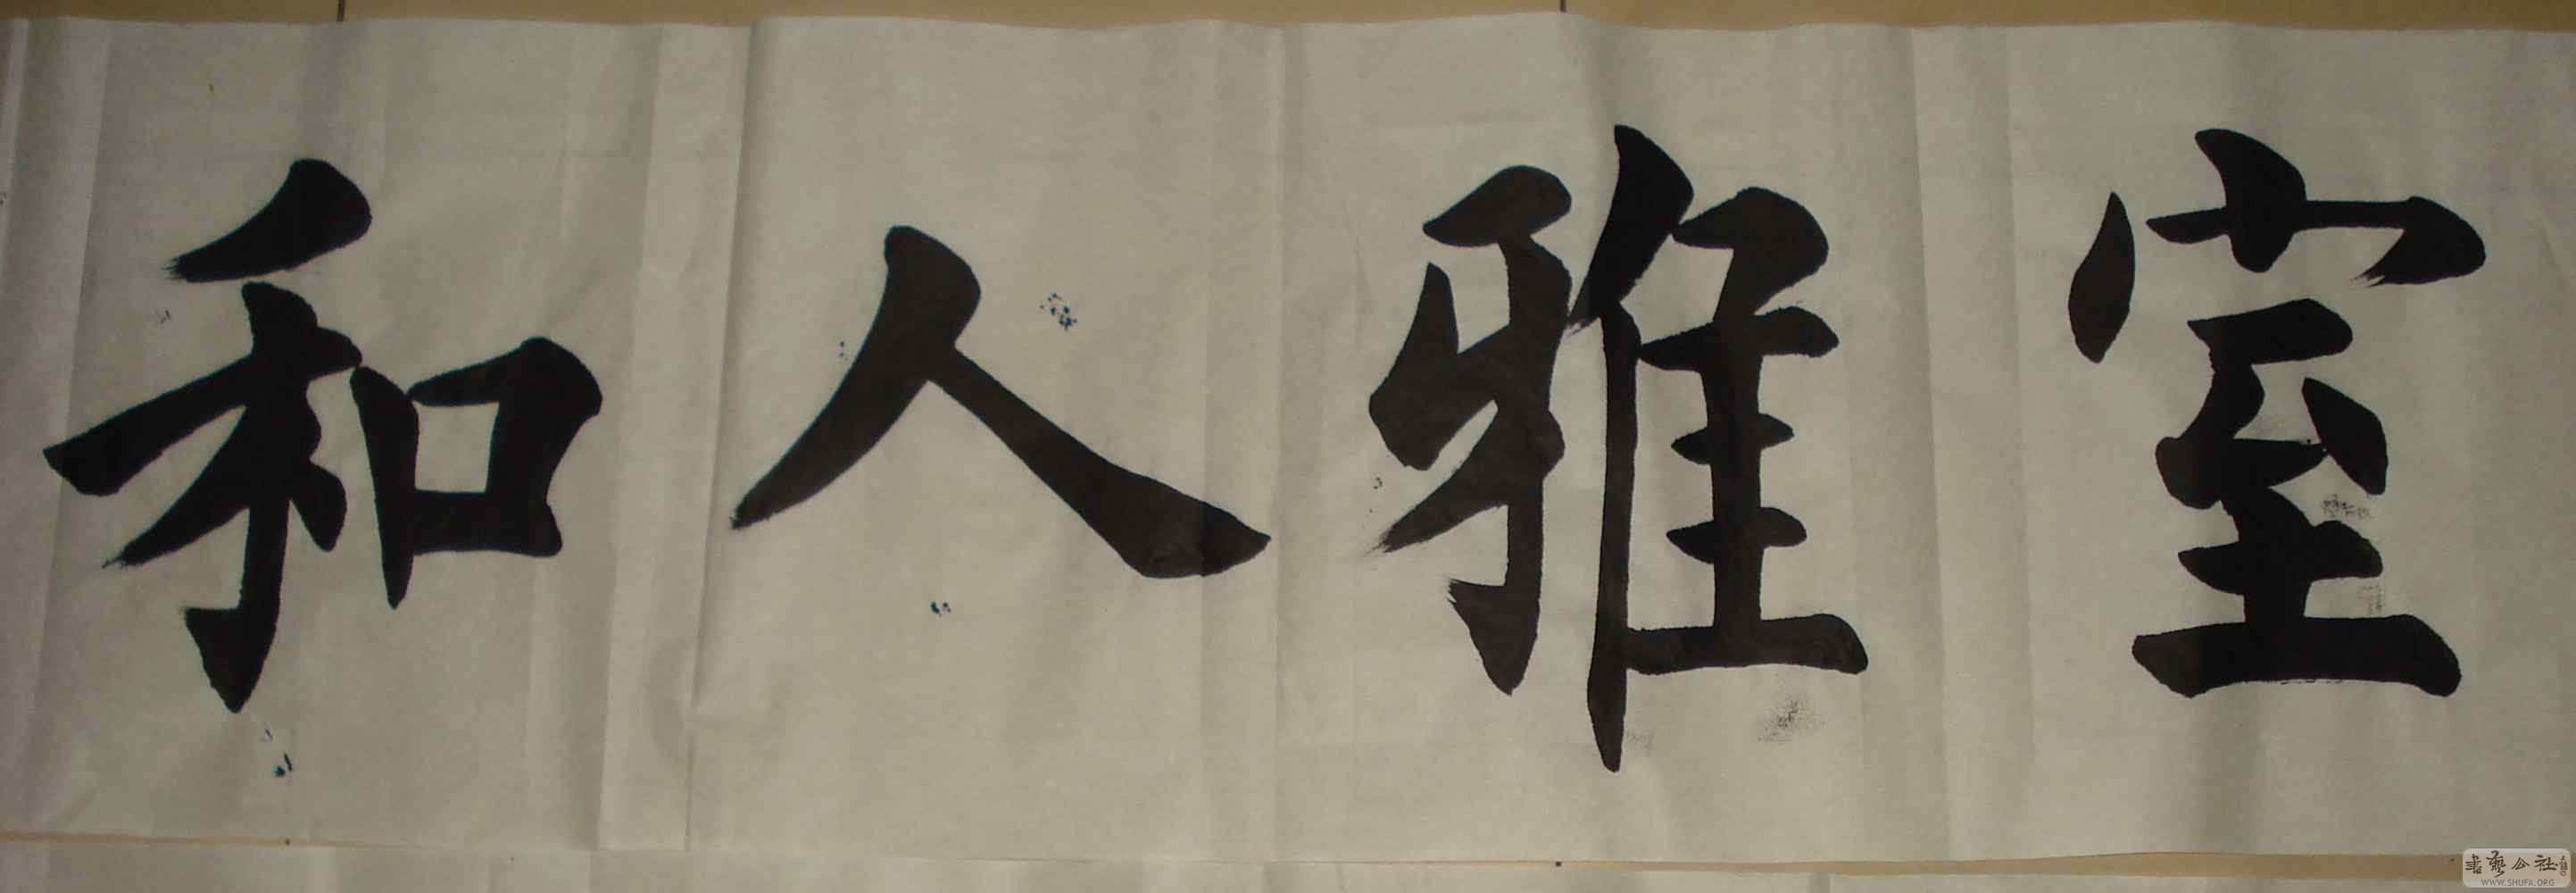 室雅人和
書藝公社
WWW.SHUFA.ORG